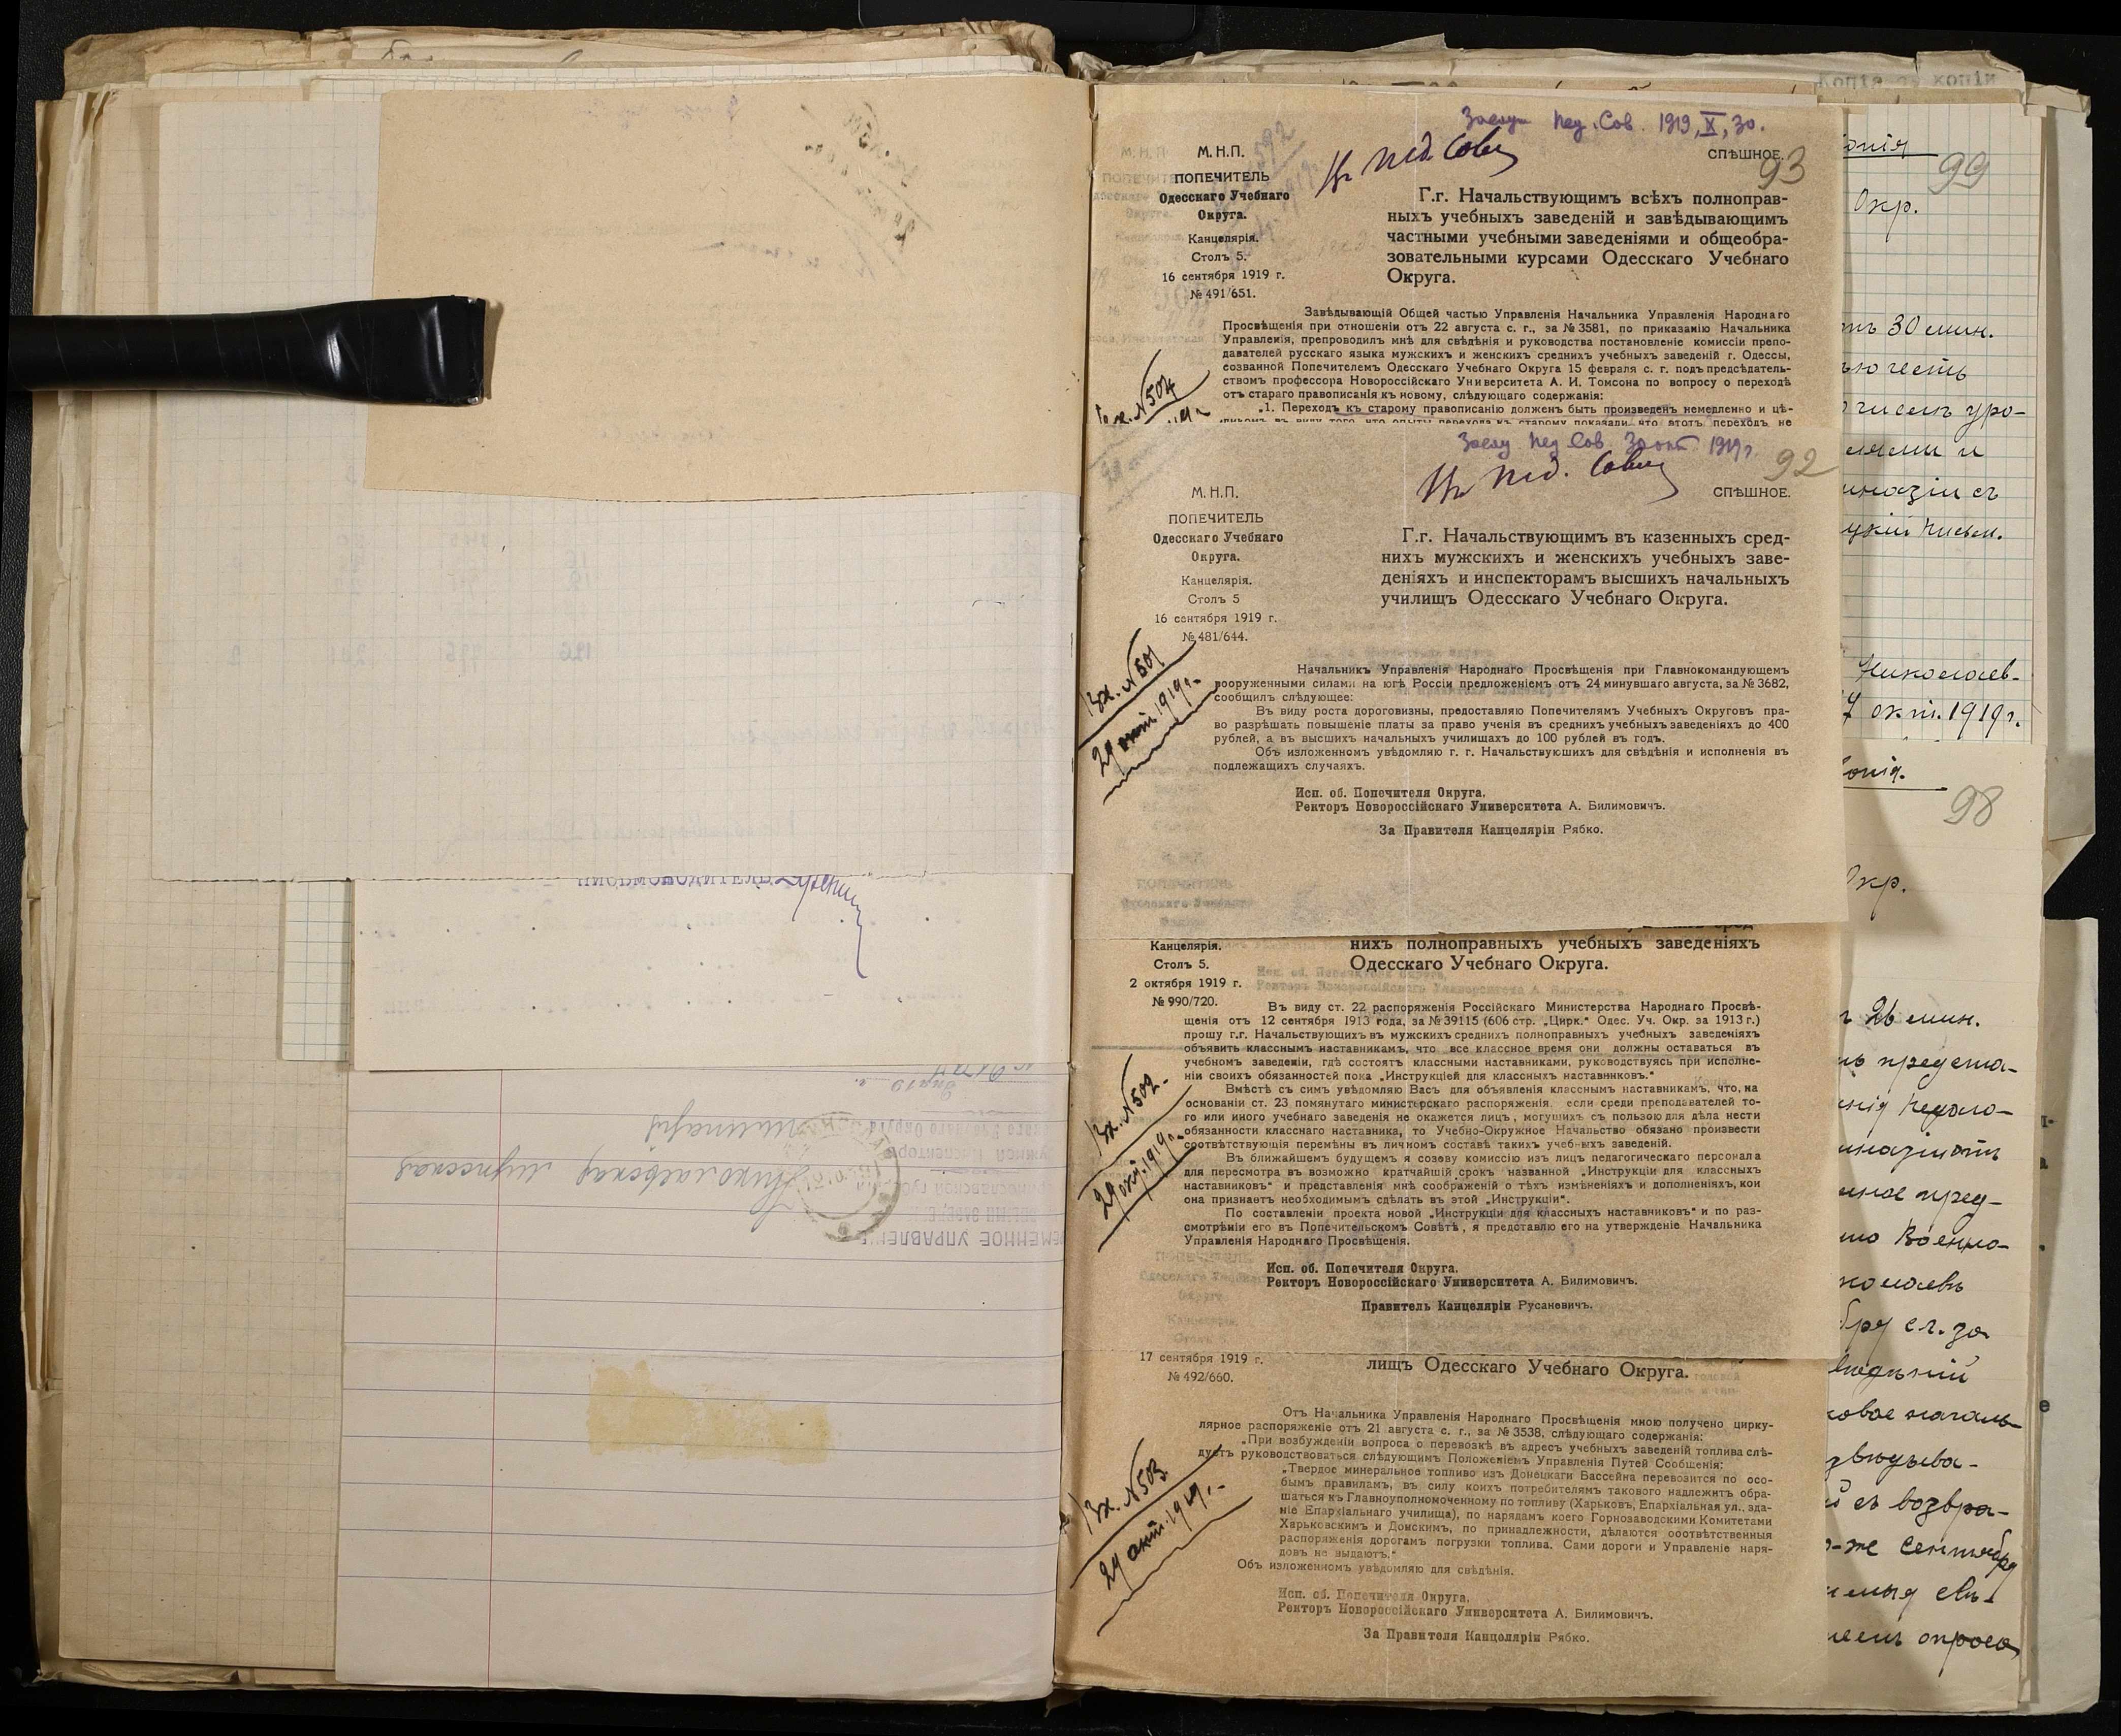 Копія съ копіи
Заслуш. Пед. Сов. 1919, X, 30.
Въ пед. Совѣтъ
М.Н.П.
СПѢШНОЕ.
93
ПОПЕЧИТЕЛЬ
Одесскаго Учебнаго
Округа.
Канцелярія.
Столъ 5.
16 сентября 1919 г.
№ 491/651.
Г.г. Начальствующимъ всѣхъ полноправ-
ныхъ учебныхъ заведеній и завѣдывающимъ
частными учебными заведеніями и общеобра-
зовательными курсами Одесскаго Учебнаго
Округа.
Завѣдывающій Общей частью Управленія Начальника Управленія Народнаго
Просвѣщенія при отношеніи отъ 22 августа с. г., за № 3581, по приказанію Начальника
Управленія, препроводилъ мнѣ для свѣдѣнія и руководства постановленіе комиссіи препо-
давателей русскаго языка мужскихъ и женскихъ среднихъ учебныхъ заведеній г. Одессы,
созванной Попечителемъ Одесскаго Учебнаго Округа 15 февраля с. г. подъ предсѣдатель-
ствомъ профессора Новороссійскаго Университета А. И. Томсона по вопросу о переходѣ
отъ стараго правописанія къ новому, слѣдующаго содержанія:
„1. Переходъ къ старому правописанію долженъ быть произведенъ немедленно и цѣ-
ликомъ въ виду того, что опыты перехода къ старому показали, что этотъ переходъ не
Вх. № 504
Заслу. Пед. Сов. 30 окт. 1919 г.
Въ пед. Совѣтъ
92
М.Н.П.
СПѢШНОЕ.
ПОПЕЧИТЕЛЬ
Одесскаго Учебнаго
Округа.
Канцелярія.
Столъ 5
16 сентября 1919 г.
№ 481/644.
Г.г. Начальствующимъ въ казенныхъ сред-
нихъ мужскихъ и женскихъ учебныхъ заве-
деніяхъ и инспекторамъ высшихъ начальныхъ
училищъ Одесскаго Учебнаго Округа.
Вх. № 501
29 окт. 1919 г.
Начальникъ Управленія Народнаго Просвѣщенія при Главнокомандующемъ
вооруженными силами на югѣ Россіи предложеніемъ отъ 24 минувшаго августа, за № 3682,
сообщилъ слѣдующее:
Въ виду роста дороговизны, предоставляю Попечителямъ Учебныхъ Округовъ пра-
во разрѣшать повышеніе платы за право ученія въ среднихъ учебныхъ заведеніяхъ до 400
рублей, а въ высшихъ начальныхъ училищахъ до 100 рублей въ годъ.
Объ изложенномъ увѣдомляю г. г. Начальствующихъ для свѣдѣнія и исполненія въ
подлежащихъ случаяхъ.
Исп. об. Попечителя Округа,
Ректоръ Новороссійскаго Университета А. Билимовичъ.
За Правителя Канцеляріи Рябко.
нихъ полноправныхъ учебныхъ заведеніяхъ
Одесскаго Учебнаго Округа.
Канцелярія.
Столъ 5.
2 октября 1919 г.
№ 990/720.
Въ виду ст. 22 распоряженія Россійскаго Министерства Народнаго Просвѣ-
щенія отъ 12 сентября 1913 года, за № 39115 (606 стр. „Цирк.“ Одес. Уч. Окр. за 1913 г.)
прошу г.г. Начальствующихъ въ мужскихъ среднихъ полноправныхъ учебныхъ заведеніяхъ
объявить класснымъ наставникамъ, что все классное время они должны оставаться въ
учебномъ заведеніи, гдѣ состоятъ классными наставниками, руководствуясь при исполне-
ніи своихъ обязанностей пока „Инструкціей для классныхъ наставниковъ.“
Вмѣстѣ съ симъ увѣдомляю Васъ для объявленія класснымъ наставникамъ, что, на
основаніи ст. 23 помянутаго министерскаго распоряженія, если среди преподавателей то-
го или иного учебнаго заведенія не окажется лицъ, могущихъ съ пользою для дѣла нести
обязанности класснаго наставника, то Учебно-Окружное Начальство обязано произвести
соотвѣтствующія перемѣны въ личномъ составѣ такихъ учебныхъ заведеній.
Въ ближайшемъ будущемъ я созову комиссію изъ лицъ педагогическаго персонала
для пересмотра въ возможно кратчайшій срокъ названной „Инструкціи для классныхъ
наставниковъ“ и представленія мнѣ соображеній о тѣхъ измѣненіяхъ и дополненіяхъ, кои
она признаетъ необходимымъ сдѣлать въ этой „Инструкціи“.
По составленіи проекта новой „Инструкціи для классныхъ наставниковъ“ и по раз-
смотрѣніи его въ Попечительскомъ Совѣтѣ, я представлю его на утвержденіе Начальника
Управленія Народнаго Просвѣщенія.
Вх. № 502
29 окт. 1919 г.
Исп. об. Попечителя Округа,
Ректоръ Новороссійскаго Университета А. Билимовичъ.
Правитель Канцеляріи Русановичъ.
17 сентября 1919 г.
№ 492/660.
лищъ Одесскаго Учебнаго Округа.
Отъ Начальника Управленія Народнаго Просвѣщенія мною получено цирку-
лярное распоряженіе отъ 21 августа с. г., за № 3538, слѣдующаго содержанія:
„При возбужденіи вопроса о перевозкѣ въ адресъ учебныхъ заведеній топлива слѣ-
дуетъ руководствоваться слѣдующимъ Положеніемъ Управленія Путей Сообщенія:
„Твердое минеральное топливо изъ Донецкаги Бассейна перевозится по осо-
бымъ правиламъ, въ силу коихъ потребителямъ таковаго надлежитъ обра-
щаться къ Главноуполномоченному по топливу (Харьковъ, Епархіальная ул., зда-
ніе Епархіальнаго училища), по нарядамъ коего Горнозаводскими Комитетами
Харьковскимъ и Донскимъ, по принадлежности, дѣлаются соотвѣтственныя
распоряженія дорогамъ погрузки топлива. Сами дороги и Управленіе наря-
довъ не выдаютъ.“
Объ изложенномъ увѣдомляю для свѣдѣнія.
Вх. № 503
29 окт. 1919 г.
Исп. об. Попечителя Округа,
Ректоръ Новороссійскаго Университета А. Билимовичъ.
За Правителя Канцеляріи Рябко.
99
Окр.
30 мин.
честь
Николаев-
окт. 1919 г.
98
Окр.
26 мин.
предста-
Педаго-
пред-
Военно-
за
съ возвра-
же Сентября